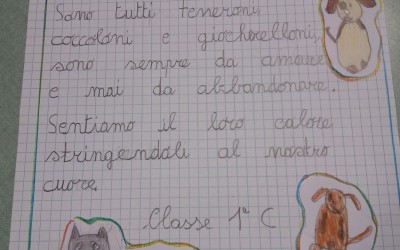 Sono tutti teneroni
coccoloni e giocherelloni,
sono sempre da amare
e mai da abbandonare.
Sentiamo il loro calore
stringendoli al nostro
cuore.
Classe 1ª C